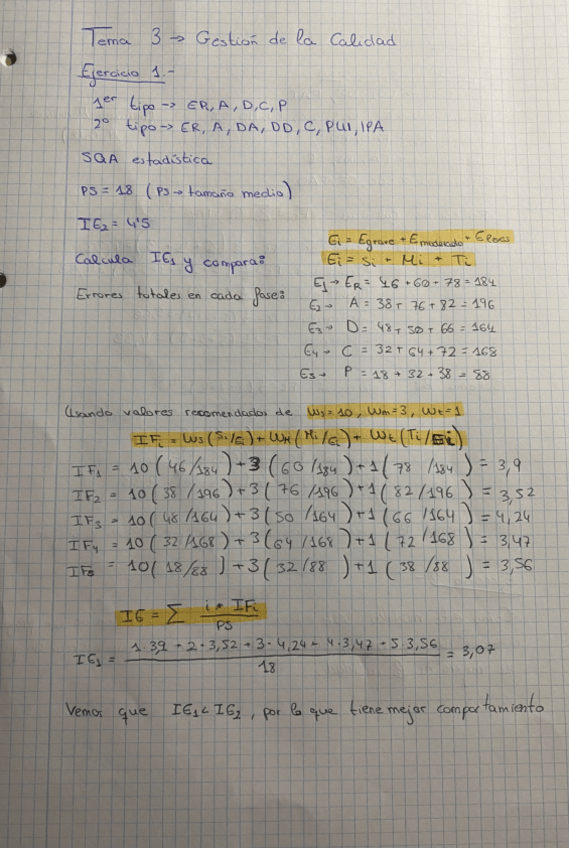 Tema 3 → Gestión de la Calidad
Ejercicio 1.-
1er tipo → ER, A, D, C, P
2º tipo → ER, A, DA, DD, C, PUI, IPA
SQA estadística
PS = 18 (PS → tamaño medio)
IE2 = 4'5
Calcula IE1 y compara:
Errores totales en cada fase:
Ei = Egrave + Emoderado + Eleves
Ei = Si + Mi + Ti
E1 → ER = 46 + 60 + 78 = 184
E2 → A = 38 + 76 + 82 = 196
E3 → D = 48 + 50 + 66 = 164
E4 → C = 32 + 64 + 72 = 168
E5 → P = 18 + 32 + 38 = 88
Usando valores recomendados de Ws = 10, Wm = 3, Wt = 1
IFi = Ws (Si/Ei) + WM (Mi/Ei) + Wt (Ti/Ei)
IF1 = 10 (46/184) + 3 (60/184) + 1 (78/184) = 3,9
IF2 = 10 (38/196) + 3 (76/196) + 1 (82/196) = 3,52
IF3 = 10 (48/164) + 3 (50/164) + 1 (66/164) = 4,24
IF4 = 10 (32/168) + 3 (64/168) + 1 (72/168) = 3,47
IF5 = 10 (18/88) + 3 (32/88) + 1 (38/88) = 3,56
IE = ∑ i * IFi / PS
IE1 = 1·3,9 + 2·3,52 + 3·4,24 + 4·3,47 + 5·3,56 / 18 = 3,07
Vemos que IE1 < IE2, por lo que tiene mejor comportamiento